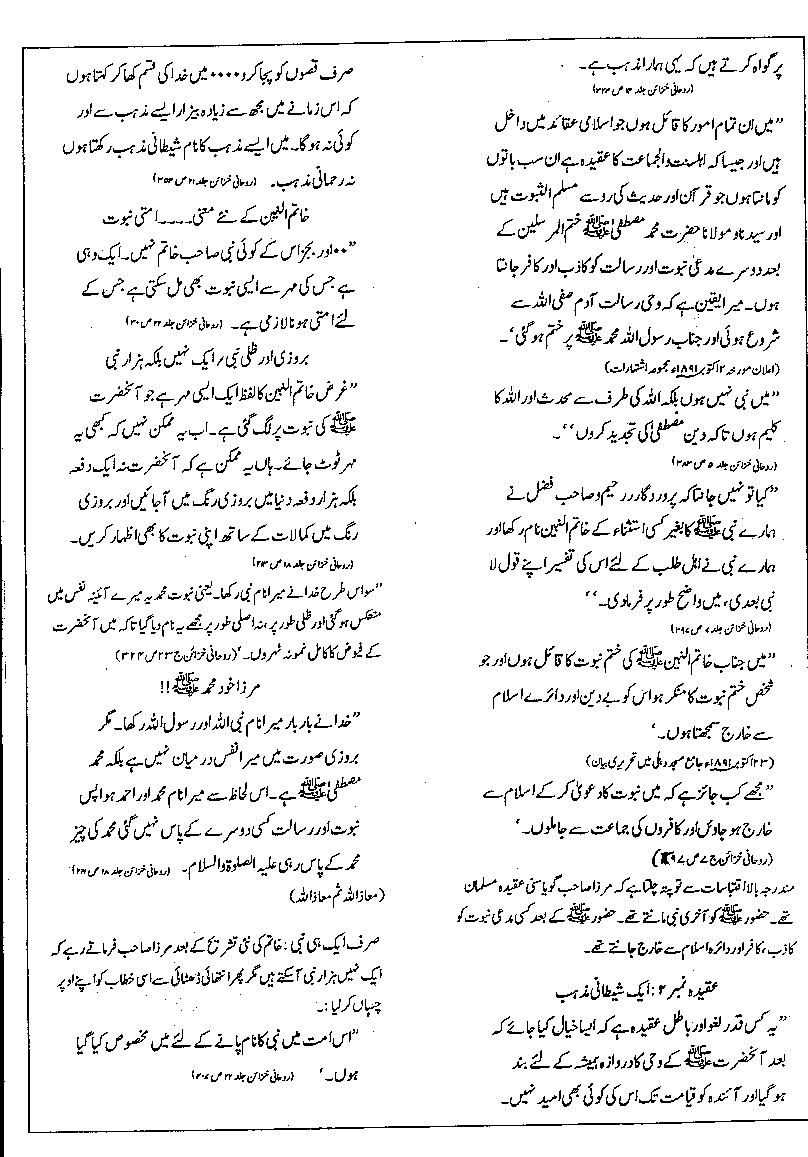 پر گواہ کرتے ہیں کہ یہی ہمارا مذہب ہے۔
(روحانی خزائن جلد ۱۳ ص ۳۲۳)
”میں ان تمام امور کا قائل ہوں جو اسلامی عقائد میں داخل
ہیں اور جیسا کہ اہلسنت والجماعت کا عقیدہ ہے ان سب باتوں
کو مانتا ہوں جو قرآن اور حدیث کی رو سے مسلم الثبوت ہیں
اور سیدنا و مولانا حضرت محمد مصطفیٰ ﷺ ختم المرسلین کے
بعد دوسرے مدعی نبوت اور رسالت کو کاذب اور کافر جانتا
ہوں۔ میرا یقین ہے کہ وحی رسالت آدم صفی اللہ سے
شروع ہوئی اور جناب رسول اللہ محمد ﷺ پر ختم ہو گئی‘۔
(اعلان مورخہ ۲ اکتوبر ۱۸۹۱ء مجموعہ اشتہارات)
”میں نبی نہیں ہوں بلکہ اللہ کی طرف سے محدث اور اللہ کا
کلیم ہوں تاکہ دین مصطفیٰ کی تجدید کروں‘‘۔
(روحانی خزائن جلد ۵ ص ۳۸۳)
”کیا تو نہیں جانتا کہ پروردگار رحیم و صاحب فضل نے
ہمارے نبی ﷺ کا بغیر کسی استثناء کے خاتم النبین نام رکھا اور
ہمارے نبی نے اہل طلب کے لئے اس کی تفسیر اپنے قول لا
نبی بعدی، میں واضح طور پر فرما دی۔‘‘
(روحانی خزائن جلد ۷ ص ۲۹۷)
”میں جناب خاتم النبین ﷺ کی ختم نبوت کا قائل ہوں اور جو
شخص ختم نبوت کا منکر ہو اس کو بے دین اور دائرے اسلام
سے خارج سمجھتا ہوں۔‘
(۲۳ اکتوبر ۱۸۹۱ء جامع مسجد دہلی میں تحریری بیان)
”مجھے کب جائز ہے کہ میں نبوت کا دعویٰ کر کے اسلام سے
خارج ہو جاؤں اور کافروں کی جماعت سے جا ملوں۔‘
(روحانی خزائن ج ۷ ص ۲۹۷)
مندرجہ بالا اقتباسات سے تو پتہ چلتا ہے کہ مرزا صاحب گویا سنی عقیدہ مسلمان
تھے۔ حضور ﷺ کو آخری نبی مانتے تھے۔ حضور ﷺ کے بعد کسی مدعی نبوت کو
کاذب، کافر اور دائرہ اسلام سے خارج جانتے تھے۔
عقیدہ نمبر ۲ : ایک شیطانی مذہب
”یہ کس قدر لغو اور باطل عقیدہ ہے کہ ایسا خیال کیا جائے کہ
بعد آنحضرت ﷺ کے وحی کا دروازہ ہمیشہ کے لئے بند
ہو گیا اور آئندہ کو قیامت تک اس کی کوئی بھی امید نہیں۔
صرف قصوں کو پوجا کرو ۰۰۰۰ میں خدا کی قسم کھا کر کہتا ہوں
کہ اس زمانے میں مجھ سے زیادہ بیزار ایسے مذہب سے اور
کوئی نہ ہوگا۔ میں ایسے مذہب کا نام شیطانی مذہب رکھتا ہوں
نہ رحمانی مذہب۔ (روحانی خزائن جلد ۲۱ ص ۳۵۴)
خاتم النبین کے نئے معنی۔۔۔۔امتی نبوت
”۰۰اور بجز اس کے کوئی نبی صاحب خاتم نہیں۔ ایک وہی
ہے جس کی مہر سے ایسی نبوت بھی مل سکتی ہے جس کے
لئے امتی ہونا لازمی ہے۔ (روحانی خزائن جلد ۲۲ ص ۳۰)
بروزی اور ظلی نبی / ایک نہیں بلکہ ہزار نبی
”غرض خاتم النبین کا لفظ ایک ایسی مہر ہے جو آنحضرت
ﷺ کی نبوت پر لگ گئی ہے۔ اب یہ ممکن نہیں کہ کبھی یہ
مہر ٹوٹ جائے۔ ہاں یہ ممکن ہے کہ آنحضرت نہ ایک دفعہ
بلکہ ہزار دفعہ دنیا میں بروزی رنگ میں آ جائیں اور بروزی
رنگ میں کمالات کے ساتھ اپنی نبوت کا بھی اظہار کریں۔
(روحانی خزائن جلد ۱۸ ص ۲۱۴)
”سو اس طرح خدا نے میرا نام نبی رکھا۔ یعنی نبوت محمدیہ میرے آئینہ نفس میں
منعکس ہو گئی اور ظلی طور پر، نہ اصلی طور پر مجھے یہ نام دیا گیا تا کہ میں آنحضرت
کے فیوض کا کامل نمونہ ٹھہروں۔‘ (روحانی خزائن ج ۲۳ ص ۳۲۴)
مرزا خود محمد ﷺ !!
”خدا نے بار بار میرا نام نبی اللہ اور رسول اللہ رکھا۔ مگر
بروزی صورت میں میرا نفس درمیان نہیں ہے بلکہ محمد
مصطفیٰ ﷺ ہے۔ اس لحاظ سے میرا نام محمد اور احمد ہوا پس
نبوت اور رسالت کسی دوسرے کے پاس نہیں گئی محمد کی چیز
محمد کے پاس رہی علیہ الصلوۃ والسلام۔ (روحانی خزائن جلد ۱۸ ص ۲۱۶)
(معاذ اللہ ثم معاذ اللہ)
صرف ایک ہی نبی : خاتم کی نئی تشریح کے بعد مرزا صاحب فرماتے رہے کہ
ایک نہیں ہزار نبی آ سکتے ہیں مگر پھر انتہائی ڈھٹائی سے اسی خطاب کو اپنے اوپر
چسپاں کر لیا :۔
”اس امت میں نبی کا نام پانے کے لئے میں مخصوص کیا گیا
ہوں۔‘ (روحانی خزائن جلد ۲۲ ص ۴۰۶)